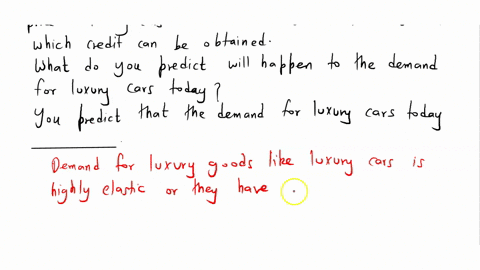 which credit can be obtained.
What do you predict will happen to the demand
for luxury cars today?
You predict that the demand for luxury cars today
Demand for luxury goods like luxury cars is
highly elastic or they have